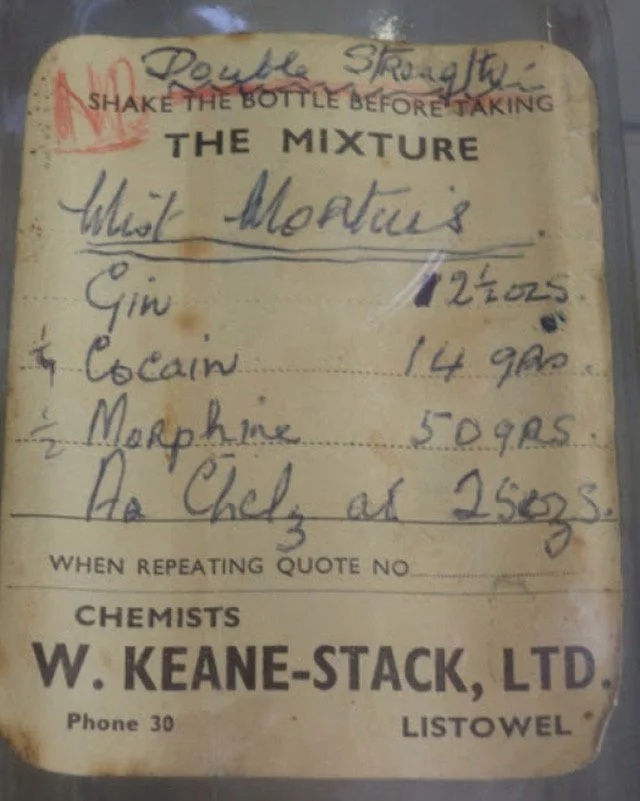 Double Strength
NP
SHAKE THE BOTTLE BEFORE TAKING
THE MIXTURE
Mist Mortuis
Gin 12½ozs.
¼ Cocain 14 grs.
½ Morphine 50 grs.
Aa Chcl3 at 25ozs.
WHEN REPEATING QUOTE NO
CHEMISTS
W. KEANE-STACK, LTD.
Phone 30 LISTOWEL